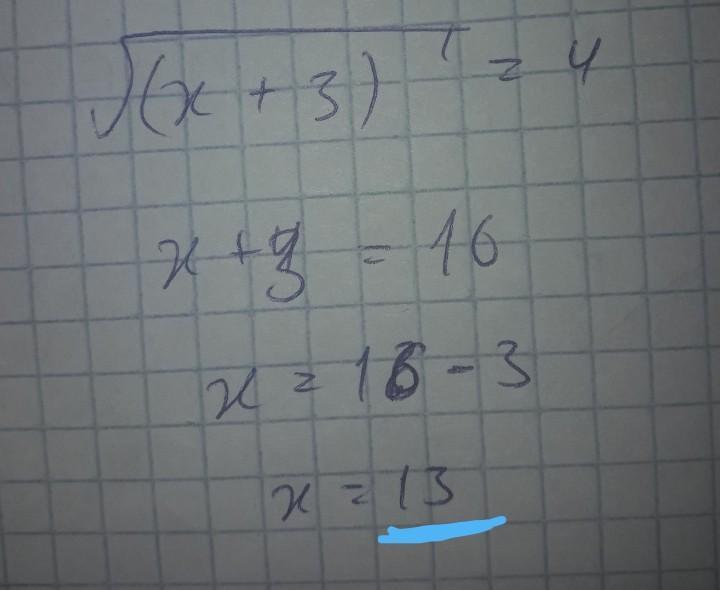 √(x + 3) = 4
x + 3 = 16
x = 16 - 3
x = 13